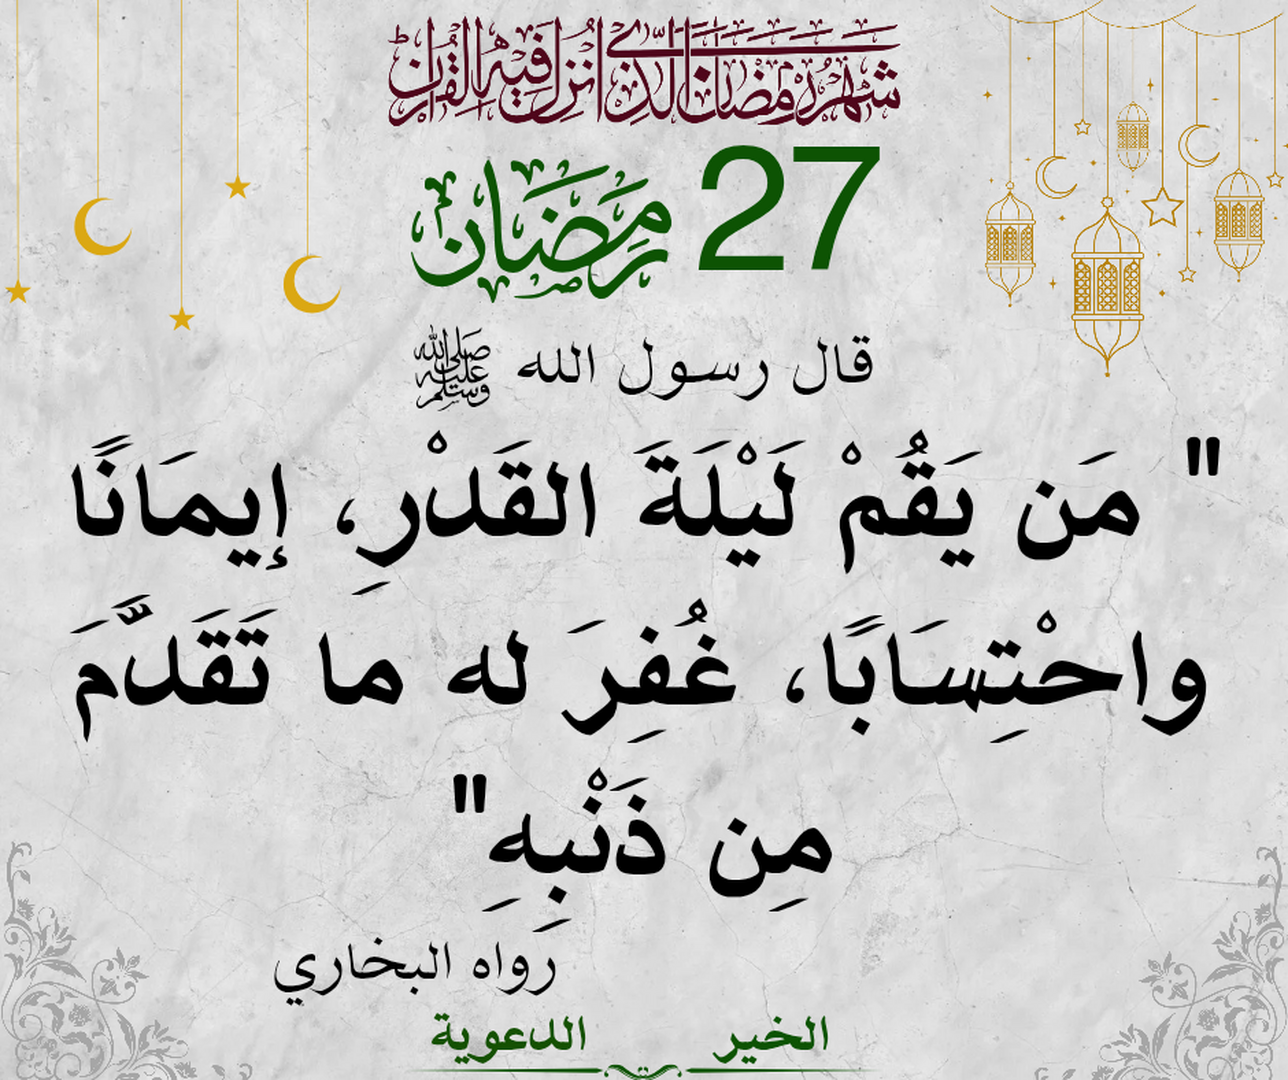 شهر رمضان الذي أنزل فيه القرآن
27 رمضان
قال رسول الله ﷺ
" مَن يَقُمْ لَيْلَةَ القَدْرِ، إيمَانًا
واحْتِسَابًا، غُفِرَ له ما تَقَدَّمَ
مِن ذَنْبِهِ"
رواه البخاري
الخير الدعوية